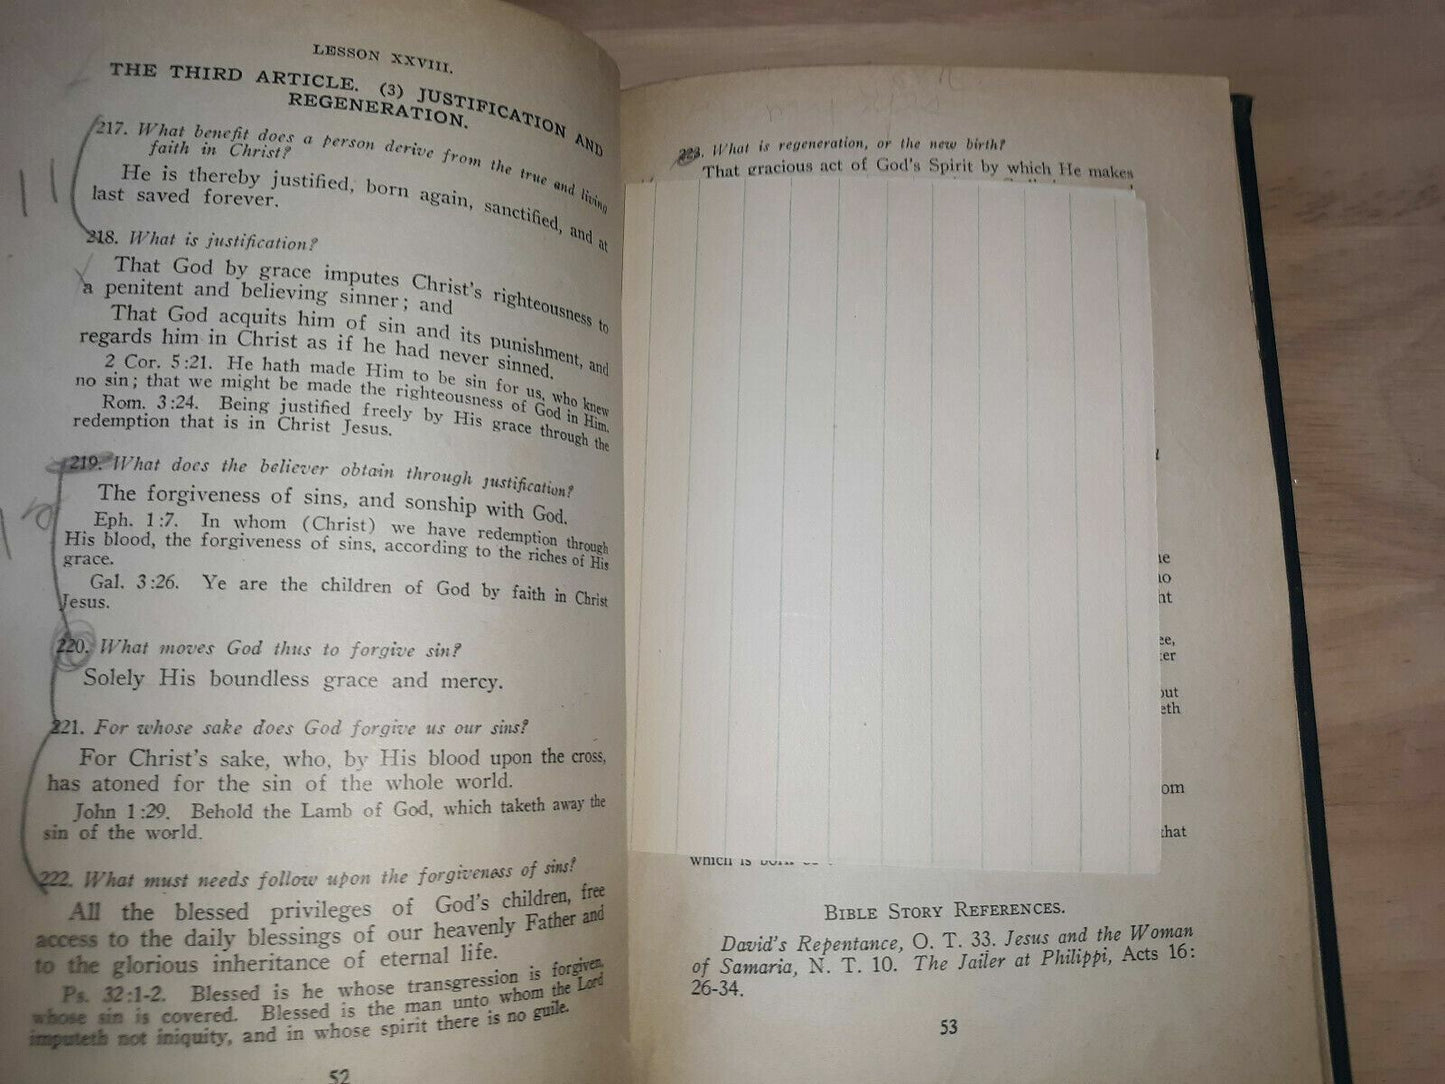 LESSON XXVIII.
THE THIRD ARTICLE. (3) JUSTIFICATION AND
REGENERATION.
217. What benefit does a person derive from the true and living
faith in Christ?
He is thereby justified, born again, sanctified, and at
last saved forever.
218. What is justification?
That God by grace imputes Christ's righteousness to
a penitent and believing sinner; and
That God acquits him of sin and its punishment, and
regards him in Christ as if he had never sinned.
2 Cor. 5:21. He hath made Him to be sin for us, who knew
no sin; that we might be made the righteousness of God in Him.
Rom. 3:24. Being justified freely by His grace through the
redemption that is in Christ Jesus.
219. What does the believer obtain through justification?
The forgiveness of sins, and sonship with God.
Eph. 1:7. In whom (Christ) we have redemption through
His blood, the forgiveness of sins, according to the riches of His
grace.
Gal. 3:26. Ye are the children of God by faith in Christ
Jesus.
220. What moves God thus to forgive sin?
Solely His boundless grace and mercy.
221. For whose sake does God forgive us our sins?
For Christ's sake, who, by His blood upon the cross,
has atoned for the sin of the whole world.
John 1:29. Behold the Lamb of God, which taketh away the
sin of the world.
222. What must needs follow upon the forgiveness of sins?
All the blessed privileges of God's children, free
access to the daily blessings of our heavenly Father and
to the glorious inheritance of eternal life.
Ps. 32:1-2. Blessed is he whose transgression is forgiven,
whose sin is covered. Blessed is the man unto whom the Lord
imputeth not iniquity, and in whose spirit there is no guile.
52
223. What is regeneration, or the new birth?
That gracious act of God's Spirit by which He makes
which is
BIBLE STORY REFERENCES.
David's Repentance, O. T. 33. Jesus and the Woman
of Samaria, N. T. 10. The Jailer at Philippi, Acts 16:
26-34.
53